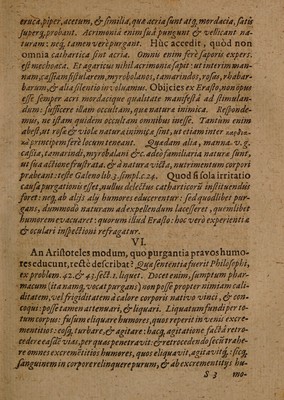 eruca, piper, acetum, & similia, quæ acria sunt atq; mordacia, satis
superq; probant. Acrimonia enim suâ pungunt & vellicant na-
turam: neq; tamen verè purgant. Hûc accedit, quòd non
omnia cathartica sint acria. Omnis enim ferè saporis expers
est mechoaca. Et agaricus nihil acrimoniæ sapit: ut interim man-
nam, cassiam fistularem, myrobolanos, tamarindos, rosas, rhabar-
barum, & alia silentio involvamus. Obijcies ex Erasto, non opus
esse semper acri mordacique qualitate manifestâ ad stimulan-
dum: sufficere illam occultam, quæ natura inimica. Responde-
mus, ne istam quidem occultam omnibus inesse. Tantum enim
abest, ut rosæ & viola naturæ inimicæ sint, ut etiam inter
principem ferè locum teneant. Quædam alia, manna. v. g.
cassia, tamarindi, myrobalani &c. adeò familiaria naturæ sunt,
ut suâ actione frustrata, & à natura victa, nutrimentum corpori
præbeant: teste Galeno lib. 3. simpl. c. 24. Quod si sola irritatio
causa purgationis esset, nullus delectus catharticorũ instituendus
foret: neq; ab alijs alij humores educerentur: sed quodlibet pur-
gans, dummodò naturam ad expellendum lacesseret, quemlibet
humorem evacuaret: quorum illud Erasto: hoc verò experientia
& oculari inspectioni refragatur.
VI.
An Aristoteles modum, quo purgantia pravos humo-
res educunt, rectè describat? Quæ sententia fuerit Philosophi,
ex problem. 42. & 43. sect. 1. liquet. Docet enim, sumptum phar-
macum (ita namq; vocat purgans) non posse propter nimiam cali-
ditatem, vel frigiditatem à calore corporis nativo vinci, & con-
coqui: posse tamen attenuari, & liquari. Liquatum fundi per to-
tum corpus: fusum eliquare humores, quos reperit in venis excre-
mentitios: eosq; turbare, & agitare: hacq; agitatione factâ retro-
cedere easdẽ vias, per quas penetravit: & retrocedendo secũ trahe-
re omnes excremẽtitios humores, quos eliquavit, agitavitq;: sicq;
sanguinem in corpore relinquere purum, & ab excrementitijs hu-
S 3 mo-